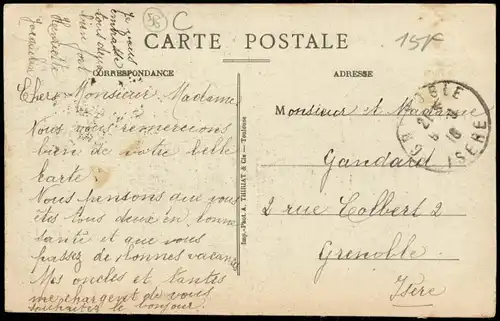 Je vous
embrasse
tous deux
bien fort
Henriette
C
CARTE POSTALE
15F
CORRESPONDANCE
ADRESSE
Chers Monsieur Madame
Nous vous remercions
bien de votre belle
karte.
Nous pensons que vous
êtes tous deux en bonne
santé et que vous
passez de bonnes vacances
Mes oncles et tantes
me chargent de vous
souhaiter le bonjour.
Imp.-Phot A. THIRIAT & Cie - Toulouse
Monsieur et Madame
Gandard
2 rue Colbert 2
Grenoble
Isère
ISERE